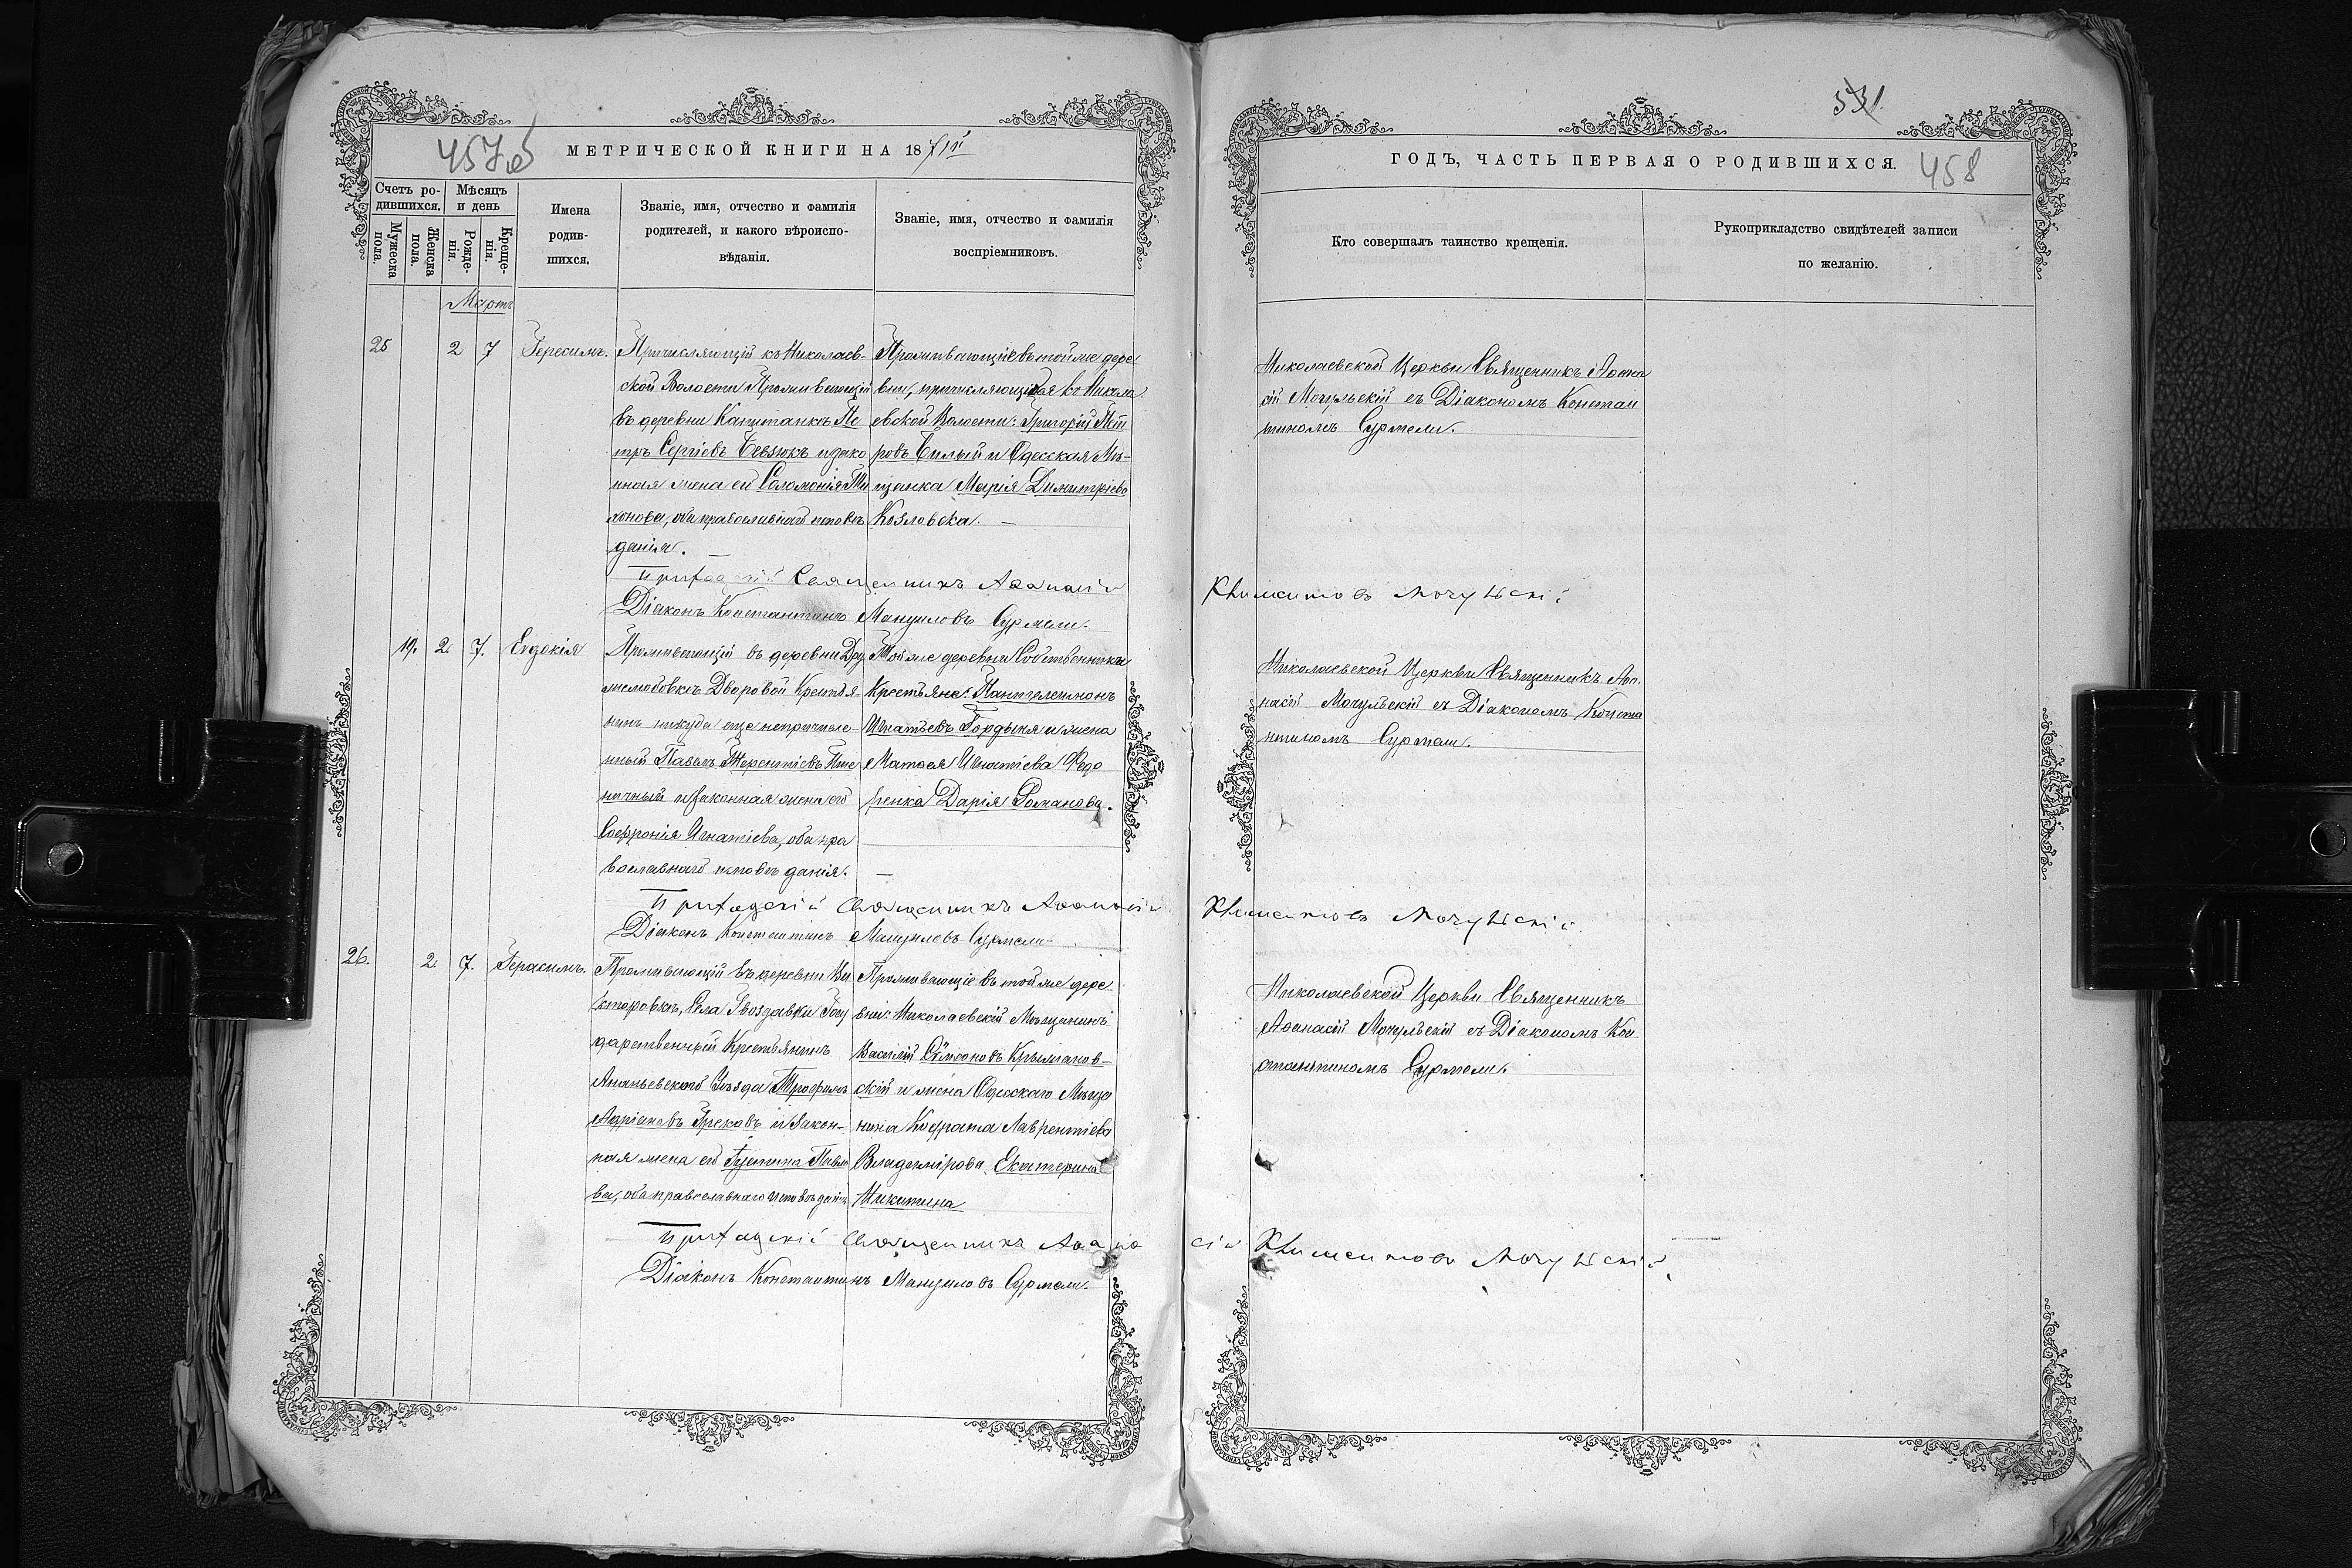 457об
МЕТРИЧЕСКОЙ КНИГИ НА 1871й
Счетъ ро-
дившихся.
Мужеска
пола.
Женска
пола.
Мѣсяцъ
и день
Рожде-
нія.
Креще-
нія.
Имена
родив-
шихся.
Званіе, имя, отчество и фамилія
родителей, и какого вѣроиспо-
вѣданія.
Званіе, имя, отчество и фамилія
воспріемниковъ.
Мартъ
25
2
7
Герасимъ.
Причисляющій къ Николаев-
ской Волости Проживающій
въ деревни Капитанкѣ Пе
тръ Сергіевъ и зако
нная жена его Соломонія Ти
хонова, оба православнаго исповѣ
данія.
Проживающіе въ той же дере
вни, причисляющіеся ко Никола
евской Волости: Григорій Пет
ровъ Билый и Одесская Мѣ-
щанка Марія Димитріева
Козловска.
Приходскій Священникъ Аѳанасій
Діаконъ Константинъ Мануиловъ Сурмели.
19.
2.
7.
Евдокія
Проживающій въ деревни Дру
желюбовкѣ Дворовой Крестья-
нинъ никуда еще непричисле-
нный Павелъ Терентіевъ Пше
ничный и законная жена его
Софронія Игнатіева, оба пра
вославнаго исповѣданія.
Той же деревни Собственники
Крестьяне: Пантелеимонъ
Игнатьевъ Гордыня и жена
Матѳея Игнатіева Федо
ренка Дарія Романова.
Приходскій Священникъ Аѳанасій
Діаконъ Константинъ Мануиловъ Сурмели
26.
2.
7.
Герасимъ.
Проживающій въ деревни Ви
кторовкѣ, Села Гвоздавки Госу
дарственный Крестьянинъ
Ананьевскаго Уѣзда Трофимъ
Адріановъ Грековъ и закон-
ная жена его Павло
ва, оба православнаго исповѣданія
Проживающіе въ той же дере
вни: Николаевскій Мѣщанинъ
Василій Сѵмеоновъ Крыжанов-
скій и жена Одесскаго Мѣща
нина Кодрата Лаврентіева
Владимірова Екатерина
Никитина
Приходскій Священникъ Аѳана
Діаконъ Константинъ Мануиловъ Сурмели.
531
ГОДЪ, ЧАСТЬ ПЕРВАЯ О РОДИВШИХСЯ.
458
Кто совершалъ таинство крещенія.
Рукоприкладство свидѣтелей записи
по желанію.
Николаевской Церкви Священникъ Аѳана
сій Мочульскій съ Діакономъ Констан
тиномъ Сурмели.
Климентовъ Мочульскій
Николаевской Церкви Священникъ Аѳа
насій Мочульскій съ Діакономъ Конста
нтиномъ Сурмели.
Климентовъ Мочульскій
Николаевской Церкви Священникъ
Аѳанасій Мочульскій съ Діакономъ Кон
стантиномъ Сурмели.
сій Климентовъ Мочульскій